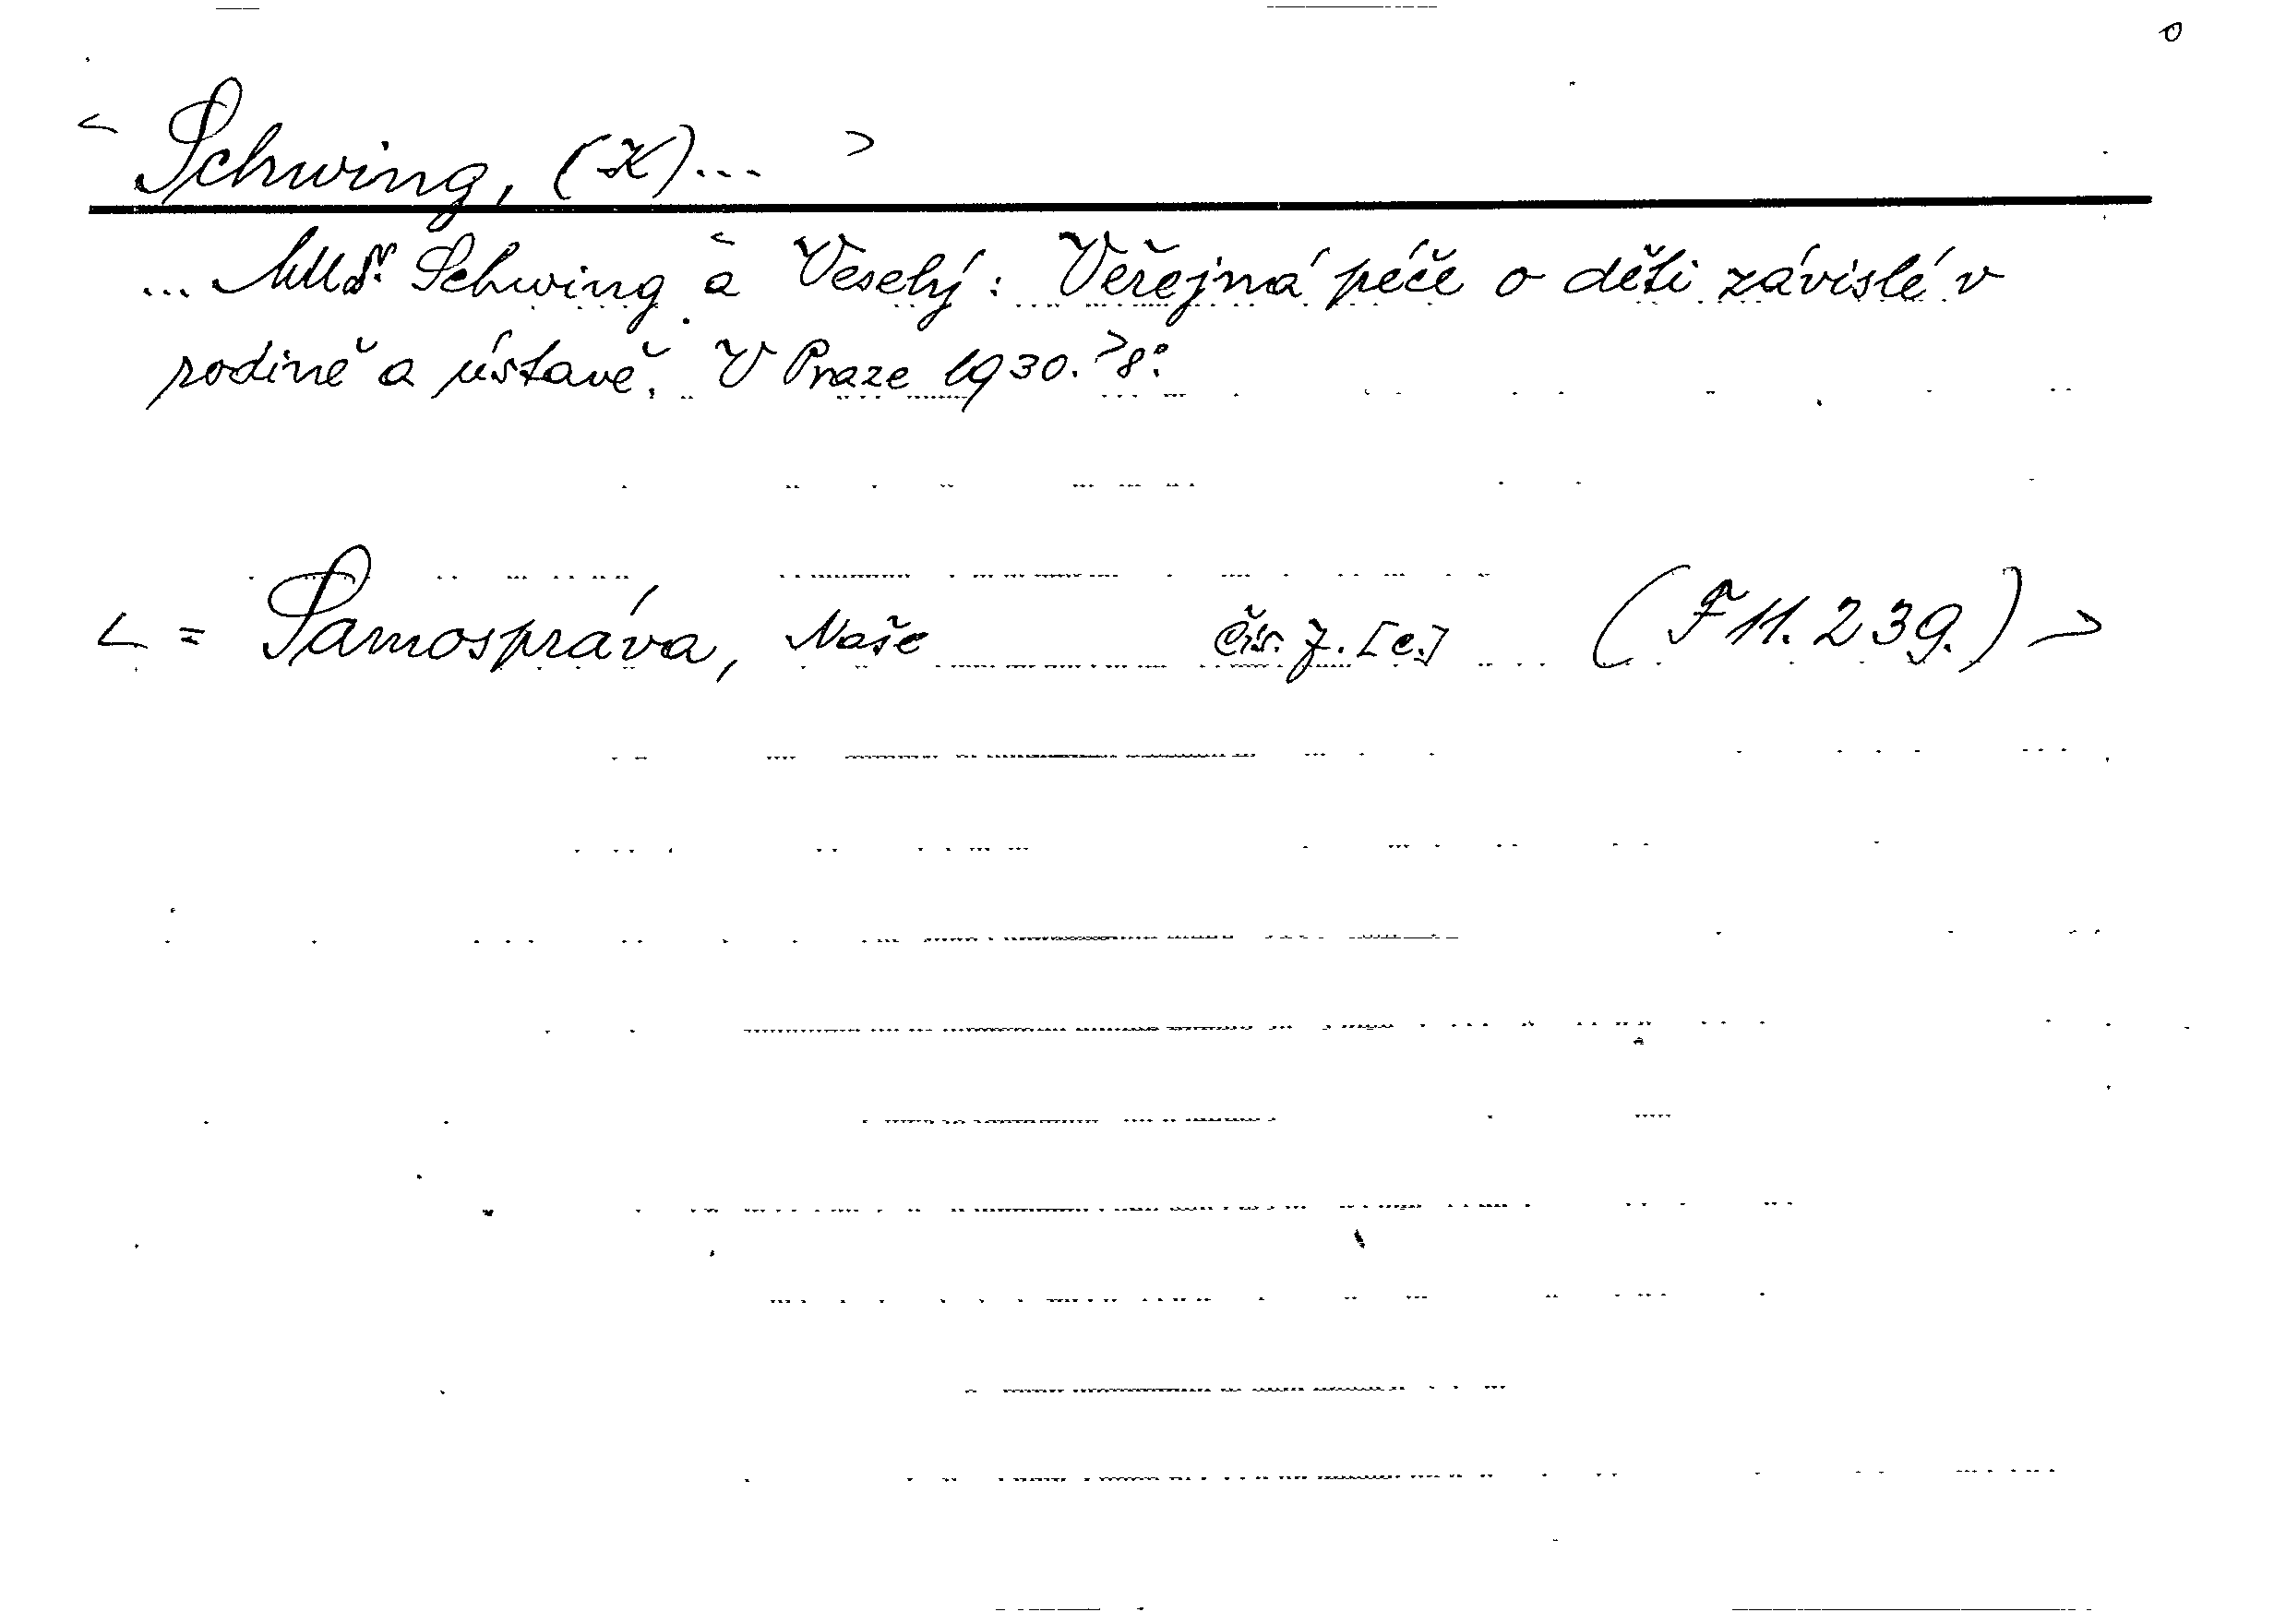 < Schwing, (K)... >
... MUDr. Schwing < a Veselý: Veřejná péče o děti závislé v
rodině a ústavě. V Praze 1930. > 8°.
< = Samospráva, Naše čís. 7. [c.] (F 11. 239.) >